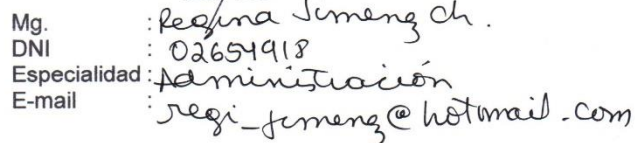 Mg. : Regina Jimenez Ch.
DNI : 02654918
Especialidad : Administración
E-mail : regi_jimenez@hotmail.com